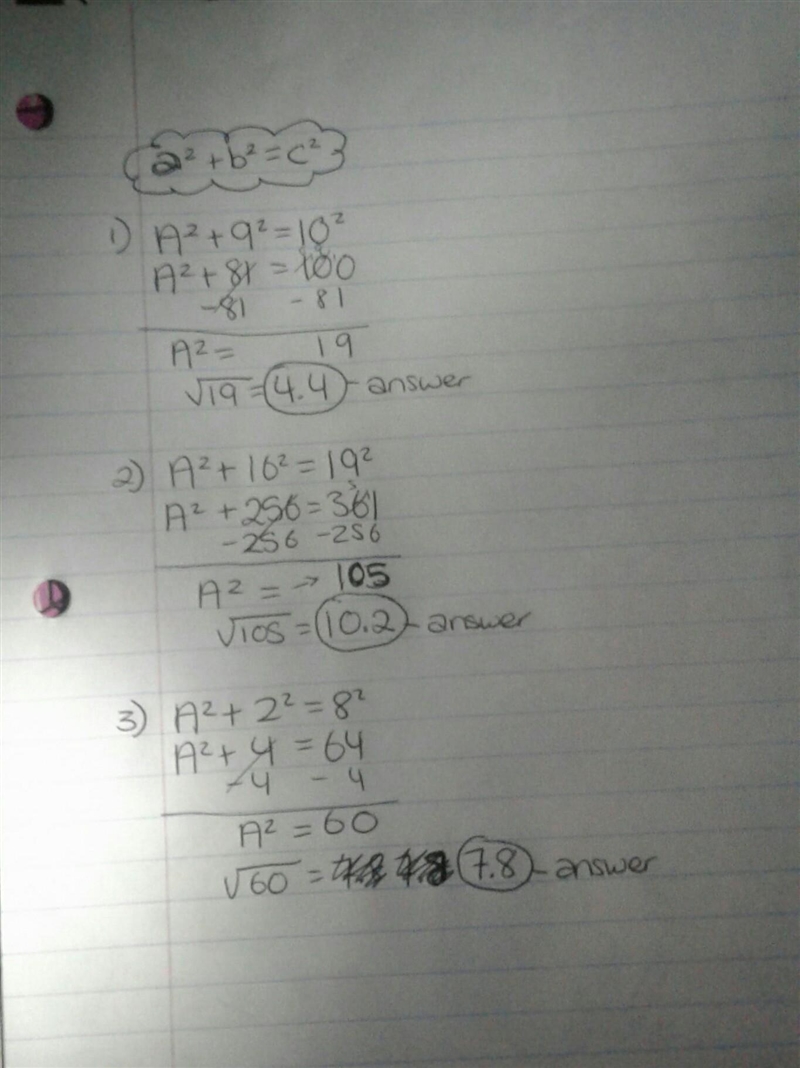 a² + b² = c²
1) A² + 9² = 10²
A² + 81 = 100
-81 - 81
A² = 19
√19 = 4.4 - answer
2) A² + 16² = 19²
A² + 256 = 361
-256 -256
A² = → 105
√105 = 10.2 - answer
3) A² + 2² = 8²
A² + 4 = 64
-4 - 4
A² = 60
√60 = 7.8 - answer